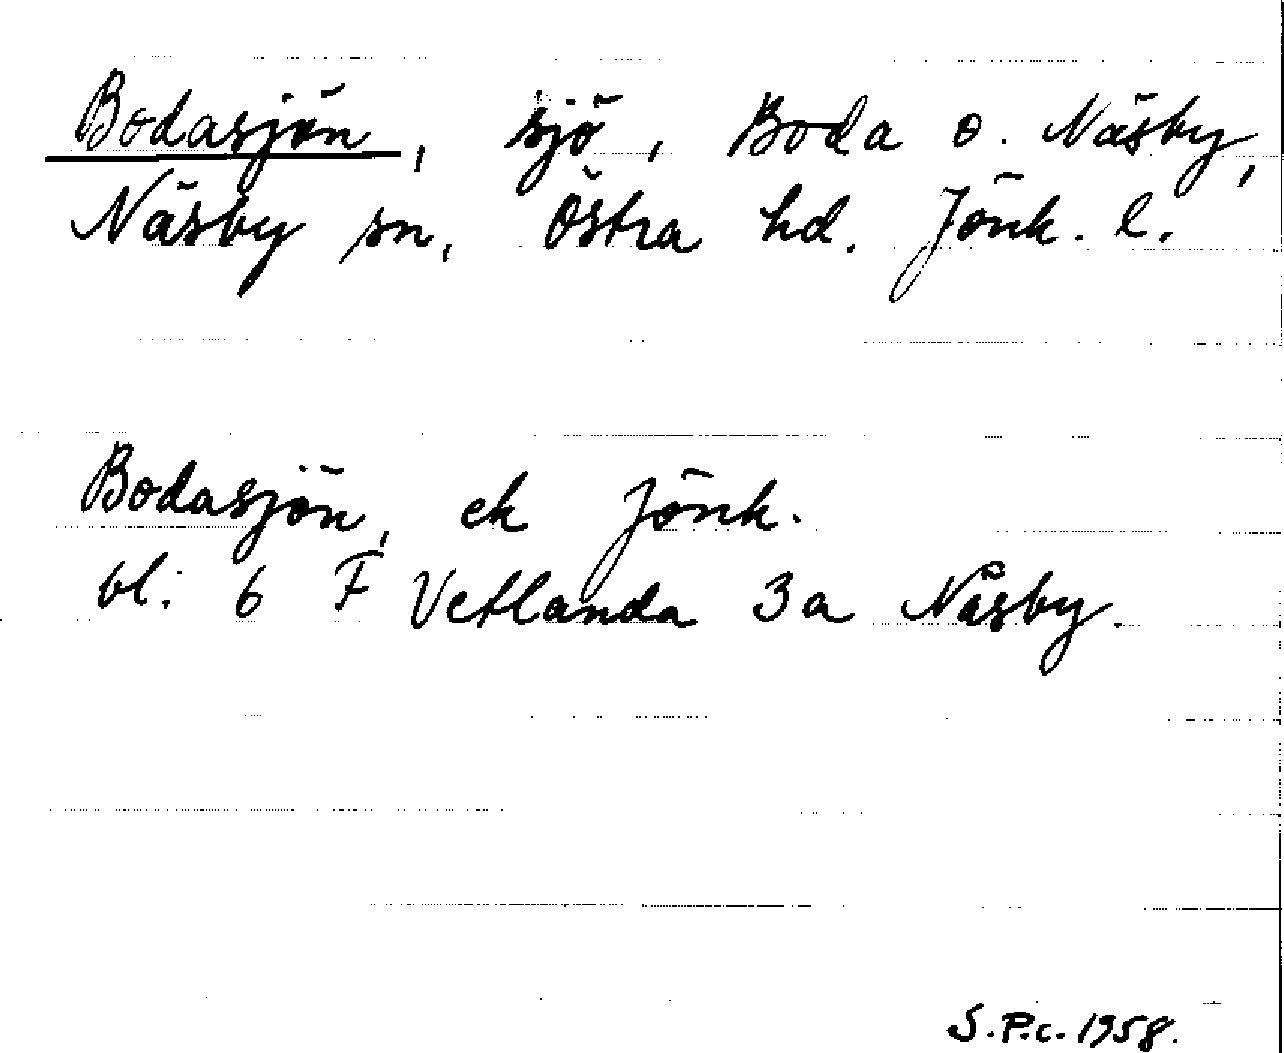 Bodasjön, sjö, Boda o. Näsby,
Näsby sn, Östra hd. Jönk. l.
Bodasjön, ek Jönk.
bl. 6 F Vetlanda 3a Näsby.
S.P.c. 1958.